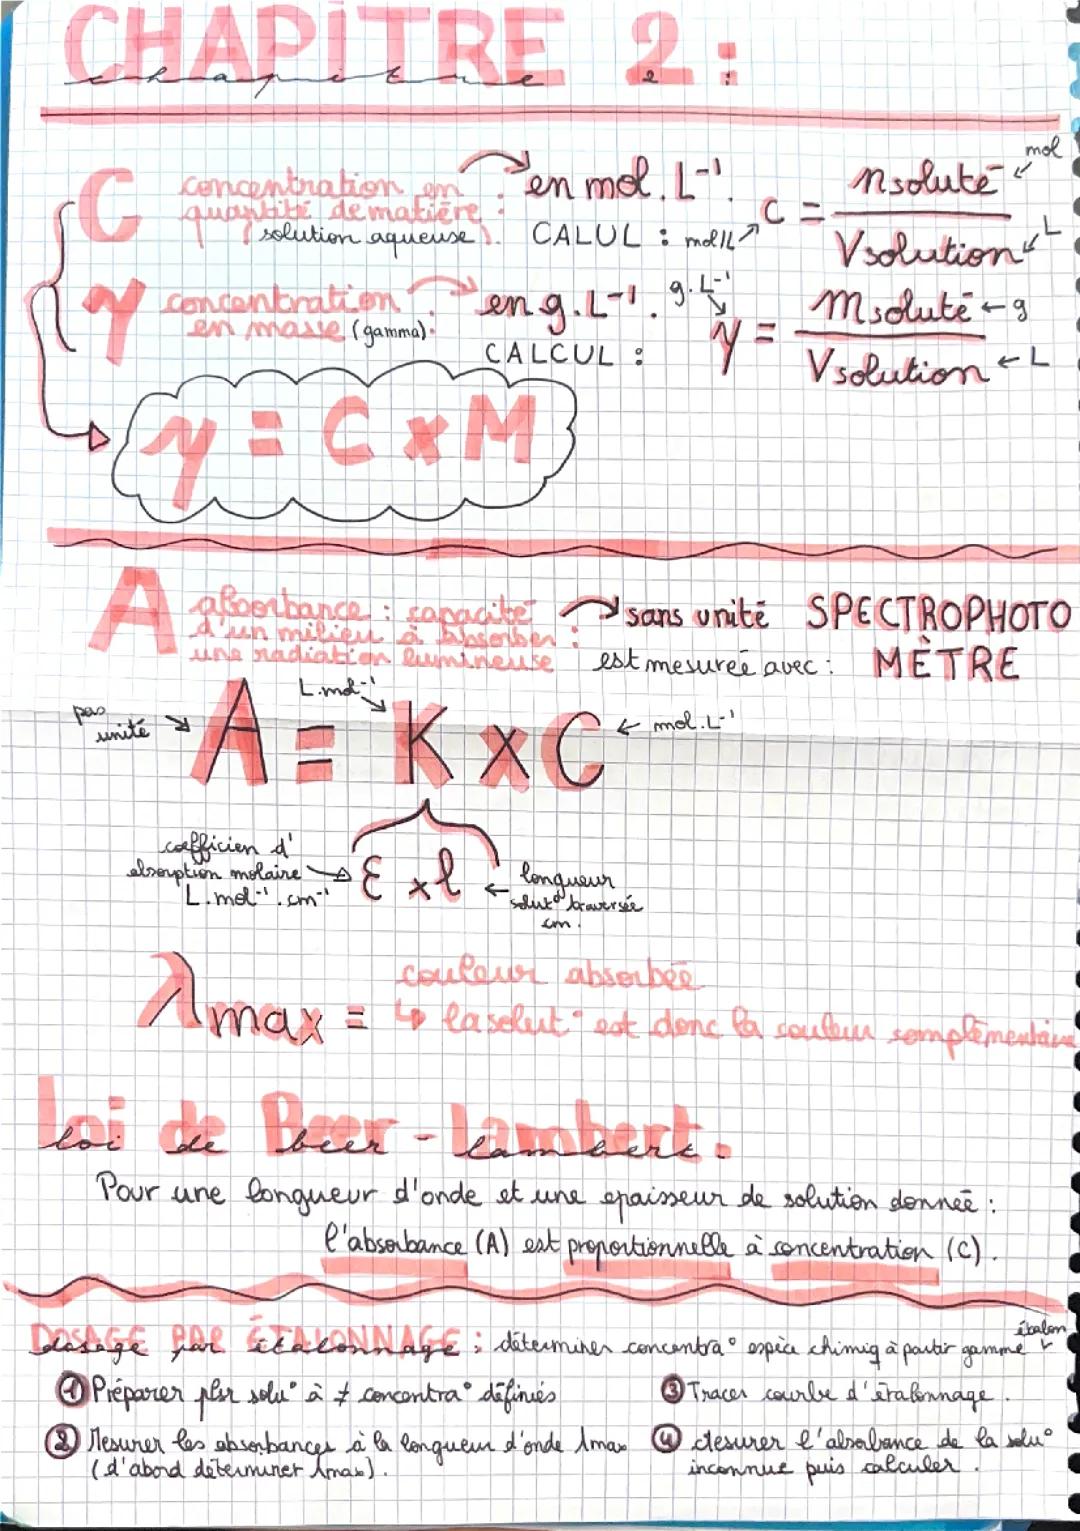 CHAPITRE 2 :
chapitre 2 :
C concentration en quantité de matière : en mol.L⁻¹.
(solution aqueuse). CALUL : mol/L C = nsoluté / Vsolution
mol
L
γ concentration en masse (gamma). : en g.L⁻¹.
CALCUL : g.L⁻¹ γ = msoluté / Vsolution
g
L
γ = C x M
A absorbance : capacité d'un milieu à absorber une radiation lumineuse :
sans unité
est mesureé avec : SPECTROPHOTO
MÈTRE
pas unité
L.mol⁻¹
A = K x C
mol.L⁻¹
coefficien d'
absorption molaire
L.mol⁻¹.cm⁻¹
Ɛ x l
longueur
solut° traversée
cm.
λmax = couleur absorbée
↳ la solut° est donc la couleur complémentaire
Loi de Beer - Lambert.
loi de beer - lambert.
Pour une longueur d'onde et une epaisseur de solution donneé :
l'absorbance (A) est proportionnelle à concentration (C).
DOSAGE PAR ÉTALONNAGE :
dosage par étalonnage : déterminer concentra° espèce chimiq à partir gamme étalon
① Préparer plsr solu° à ≠ concentra° définiés
② Mesurer les absorbances à la longueur d'onde λmax
(d'abord déterminer λmax).
③ Tracer courbe d'étalonnage.
④ Mesurer l'absorbance de la solu°
inconnue puis calculer.